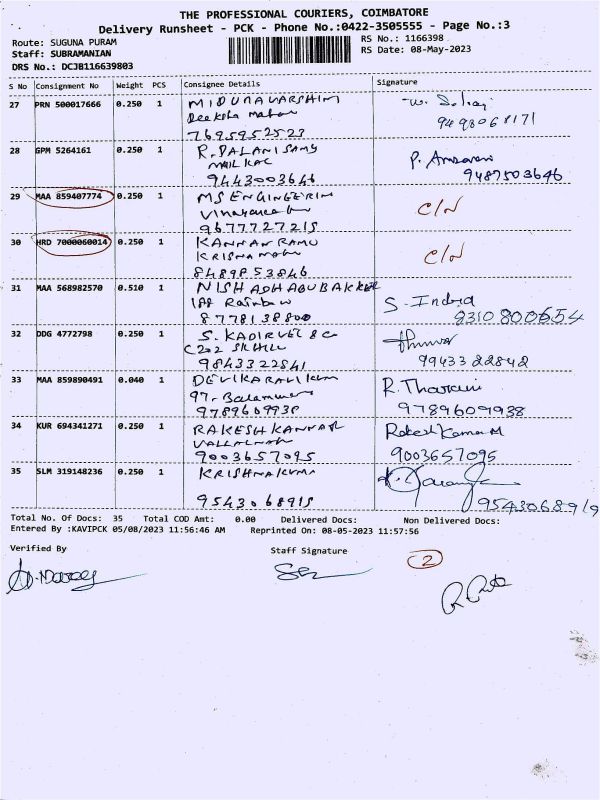 THE PROFESSIONAL COURIERS, COIMBATORE
Delivery Runsheet - PCK - Phone No.:0422-3505555 - Page No.:3
Route: SUGUNA PURAM RS No.: 1166398
Staff: SUBRAMANIAN RS Date: 08-May-2023
DRS No.: DCJB116639803
S No Consignment No Weight PCS Consignee Details Signature
27 PRN 500017666 0.250 1 MIDUNAVARSHINI
Deeksha 9498068171
7695952523
28 GPM 5264161 0.250 1 R. PALANISAMY
9443003646 9487503646
29 MAA 859407774 0.250 1 MS ENGINEERIN
9677727215 C/N
30 HRD 7000060014 0.250 1 KANNAN RAMU
KRISNA C/N
8489853846
31 MAA 568982570 0.510 1 NISHADHABUBAKKER
Rainbow S. Indra
8778138800 9310800654
32 DDG 4772798 0.250 1 S. KADIRVEL & C
C202
9843322841 9943322842
33 MAA 859890491 0.040 1 DEVIKARAVIKUM
97- R. Tharani
9789609938 9789609938
34 KUR 694341271 0.250 1 RAKESH KANNAN
Rakesh Kannan M
9003657095 9003657095
35 SLM 319148236 0.250 1 KRISHNAKUMA
9543068919 9543068919
Total No. Of Docs: 35 Total COD Amt: 0.00 Delivered Docs: Non Delivered Docs:
Entered By :KAVIPCK 05/08/2023 11:56:46 AM Reprinted On: 08-05-2023 11:57:56
Verified By Staff Signature
2